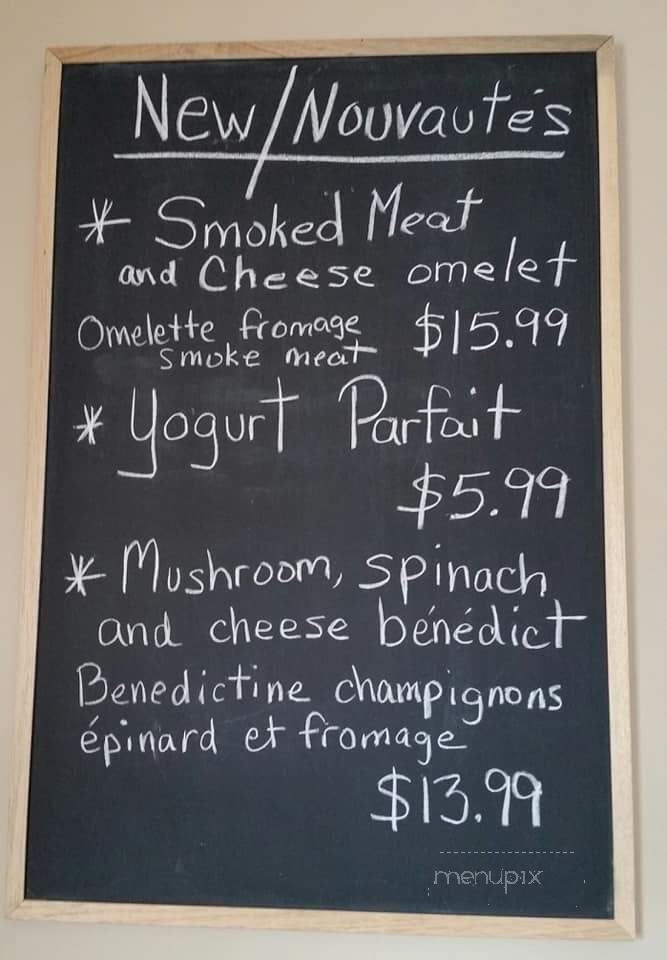 New/Nouvautés
* Smoked Meat
and Cheese omelet
Omelette fromage $15.99
smoke meat
* Yogurt Parfait
$5.99
* Mushroom, spinach
and cheese bénédict
Benedictine champignons
épinard et fromage
$13.99
menupix